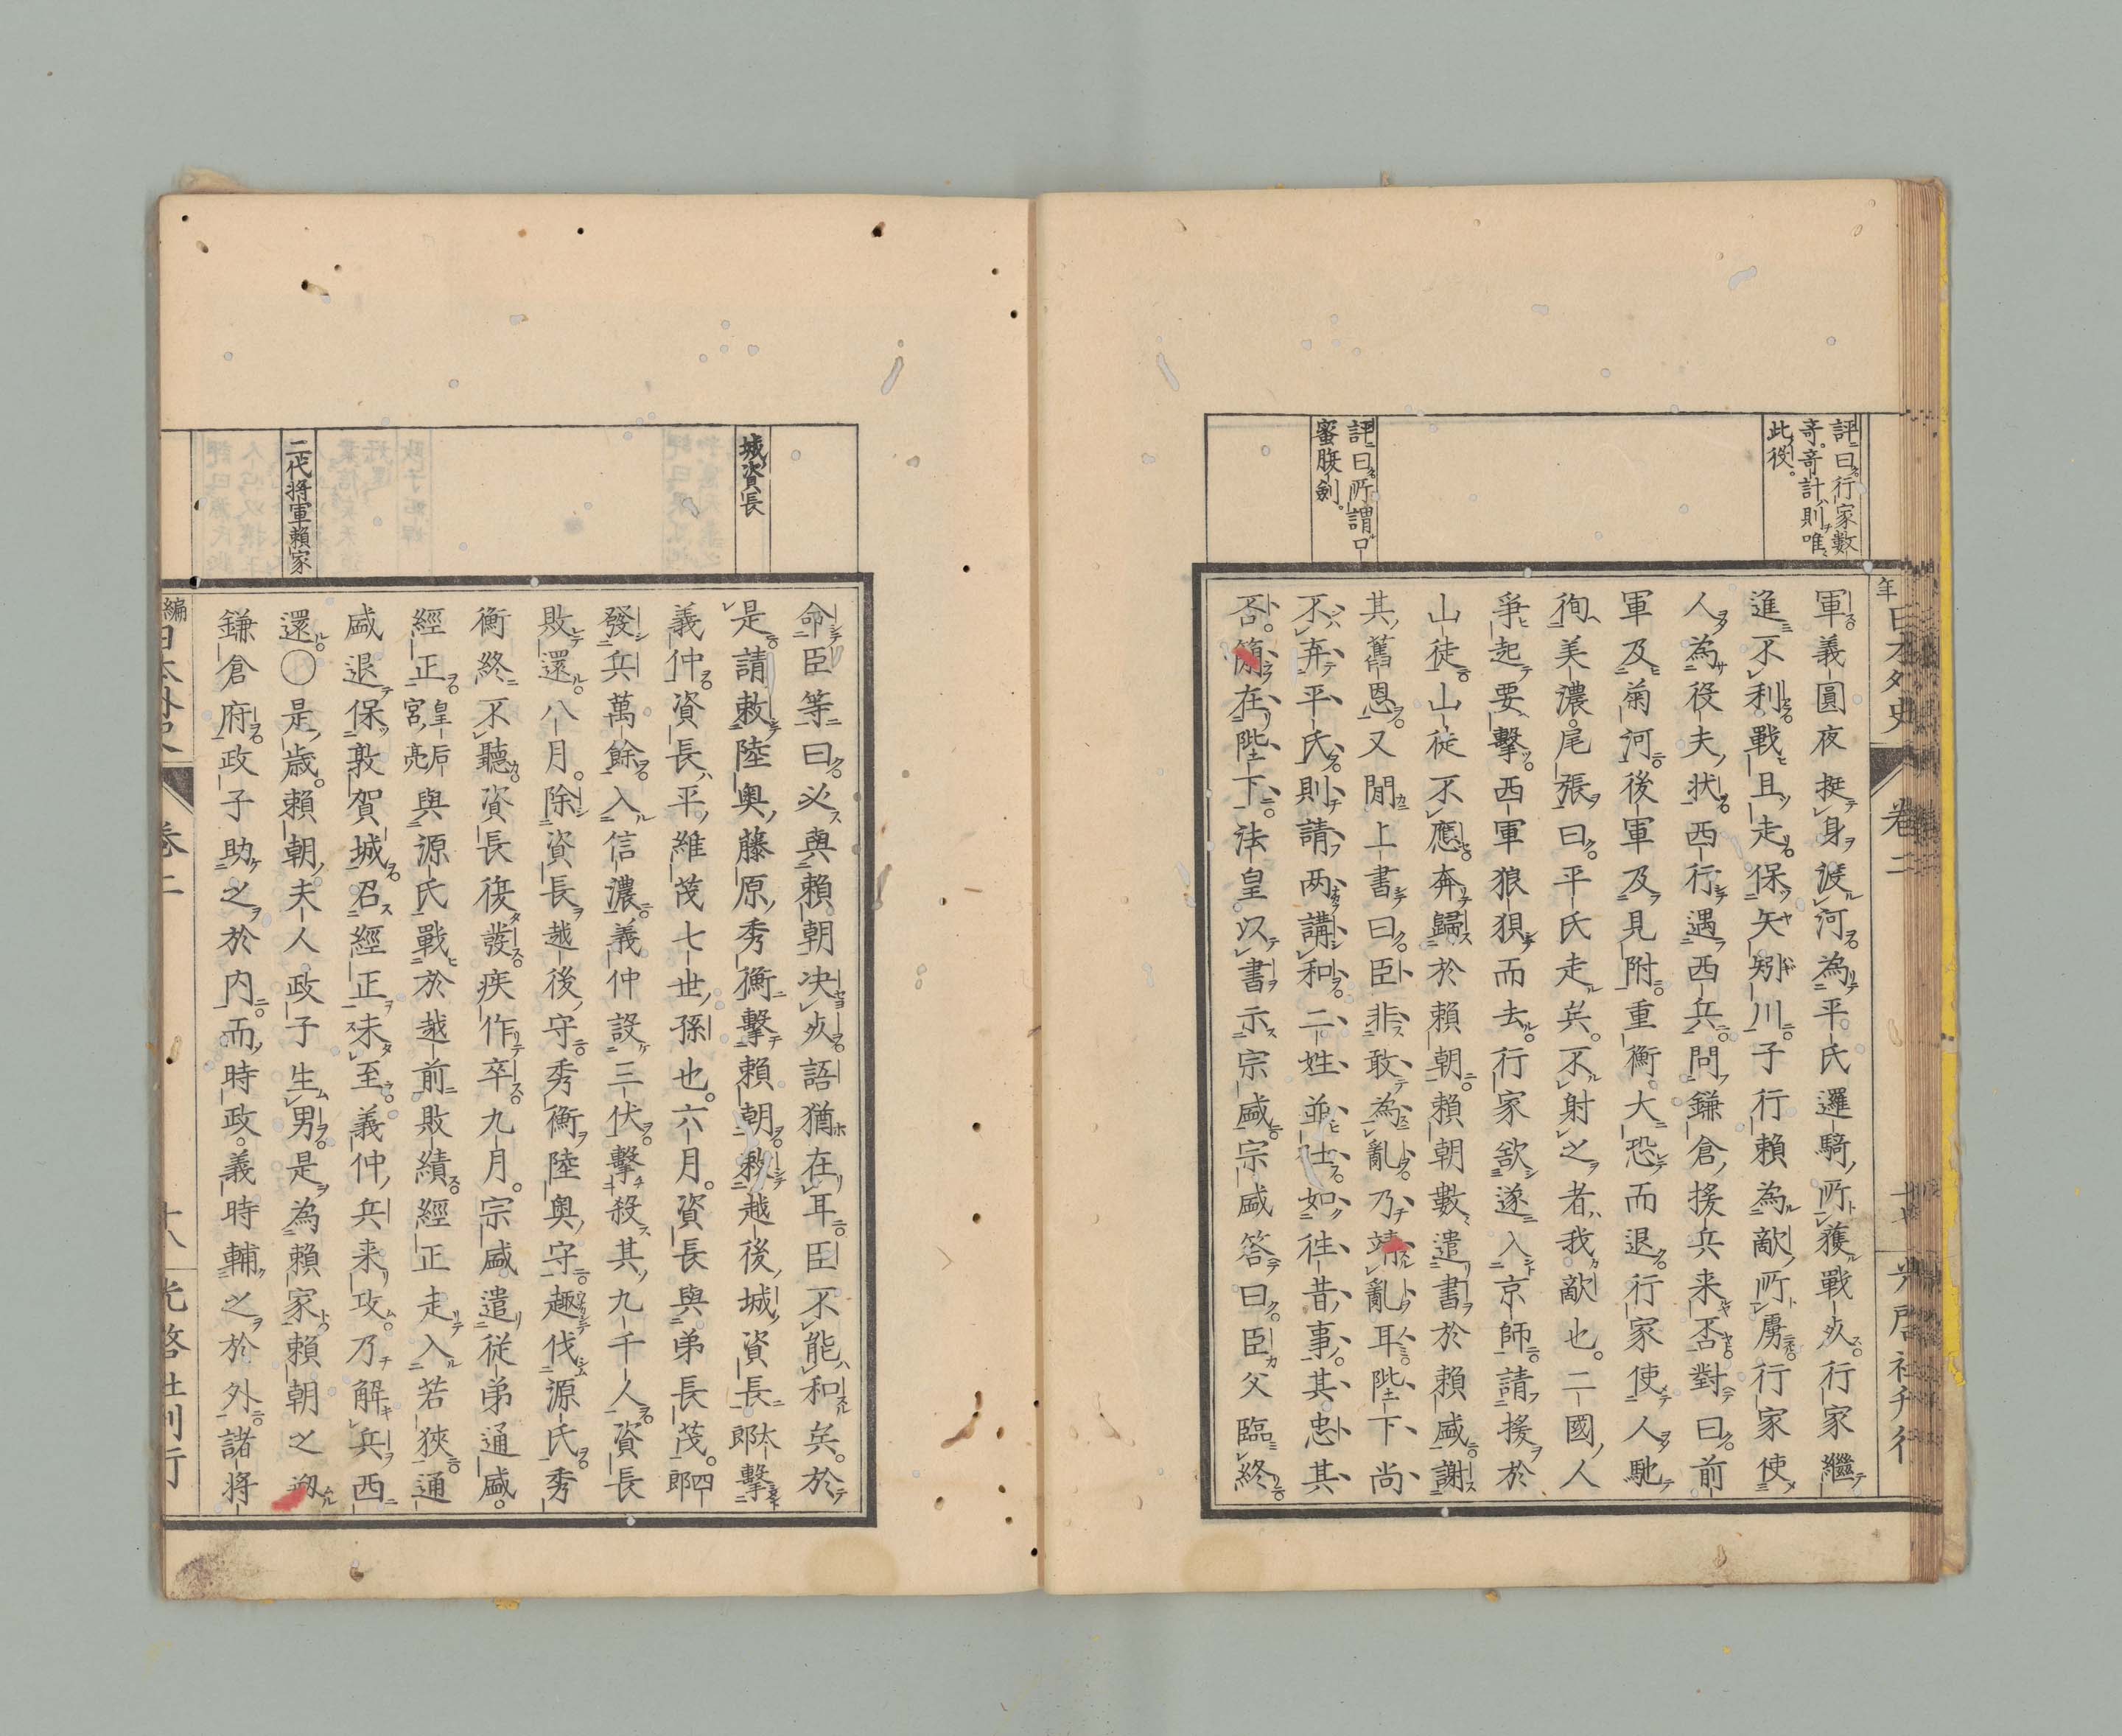 評曰行家數
奇。奇計則唯
此役。
評曰所謂口
蜜腹劍。
軍義圓夜挺身渡河為平氏邏騎所獲戰死。行家繼
進不利戰且走保矢矧川子行賴為敵所虜行家使
人為役夫狀西行遇西兵。問鎌倉援兵来否對曰。前
軍及菊河後軍及見附重衡大恐而退。行家使人馳
徇美濃尾張曰。平氏走矣。不射之者我敵也。二國人
爭起要擊。西軍狼狽而去。行家欲遂入京師。請援於
山徒山徒不應。奔歸於賴朝。賴朝數遣書於賴盛謝
其舊恩。又間上書曰。臣非敢為亂。乃靖亂耳。陛下尚
不弃平氏則請兩講和。二姓並仕。如往昔事。其忠其
否。簡在陛下。法皇以書示宗盛宗盛答曰。臣父臨終
城資長
二代將軍賴家
命臣等曰。必與賴朝決死。語猶在耳。臣不能和矣。於
是請敕陸奧藤原秀衡擊賴朝。敕越後城資長太郎擊
義仲。資長平維茂七世孫也。六月。資長與弟長茂。四郎
發兵萬餘入信濃。義仲設三伏。擊殺其九千人。資長
敗還。八月。除資長越後守秀衡陸奧守。趣伐源氏。秀
衡終不聽。資長復發疾作卒。九月。宗盛遣從弟通盛。
經正皇后宮亮與源氏戰於越前敗績。經正走入若狹。通
盛退保敦賀城。召經正未至。義仲兵来攻。乃解兵西
還。〇是歲。賴朝夫人政子生男。是為賴家。賴朝之
鎌倉府。政子助之於内。而時政。義時輔之於外。諸將
卷二
十八
光啓社刊行